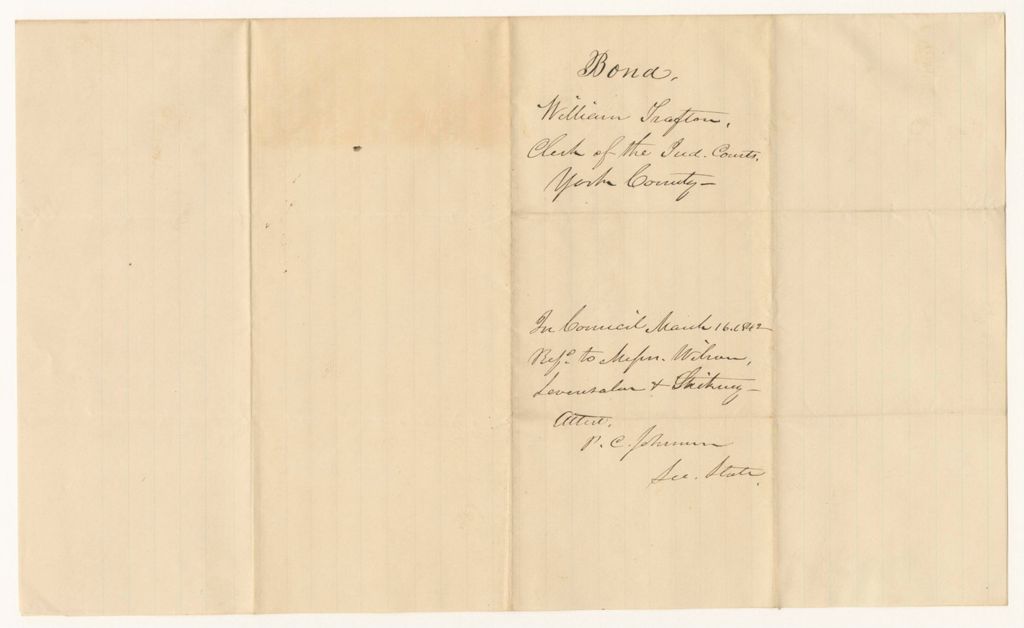 Bond,
William Trafton,
Clerk of the Jud. Courts,
York County—
In Council March 16. 1842
Refd. to Messrs. Wilson,
Levensalor &
Attest,
P. C. Johnson
Sec. State.